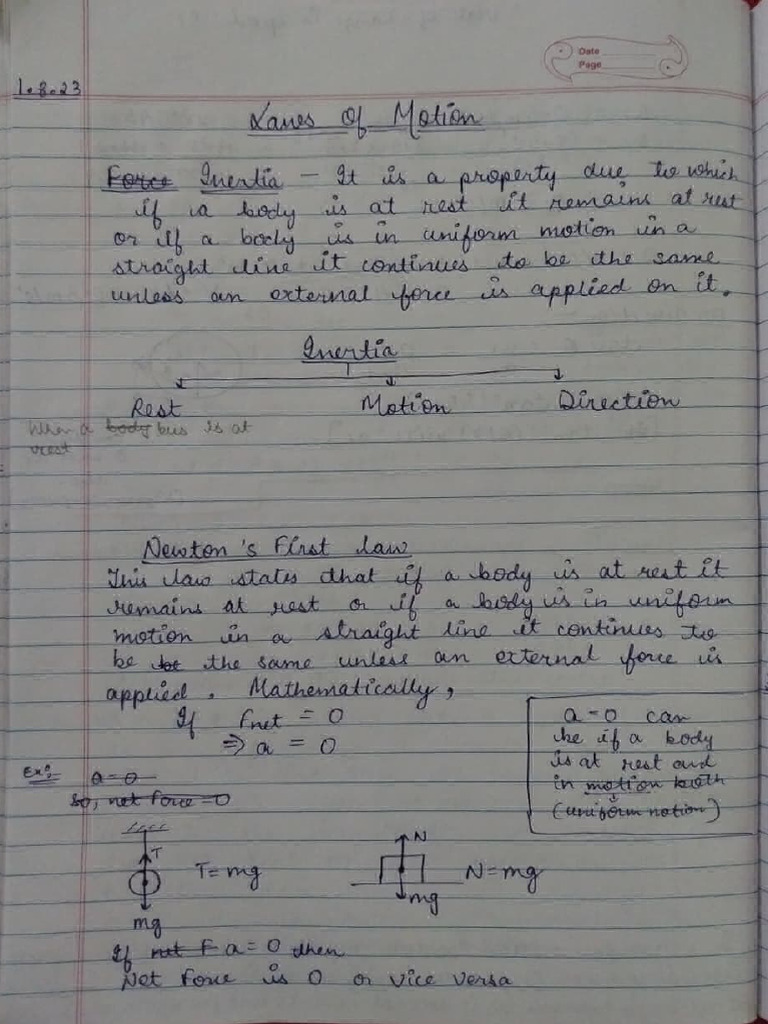 Date
Page
1.8.23
Laws Of Motion
Force Inertia - It is a property due to which
if a body is at rest it remains at rest
or if a body is in uniform motion in a
straight line it continues to be the same
unless an external force is applied on it.
Inertia
Rest Motion Direction
When a body bus is at
rest
Newton's First law
This law states that if a body is at rest it
remains at rest or if a body is in uniform
motion in a straight line it continues to
be the same unless an external force is
applied. Mathematically,
If Fnet = 0
⇒ a = 0
a=0 can
be if a body
is at rest and
in motion both
(uniform motion)
Ex:- a=0
So, net force=0
T
T=mg
mg
N
N=mg
mg
If net F a=0 then
Net Force is 0 or vice versa